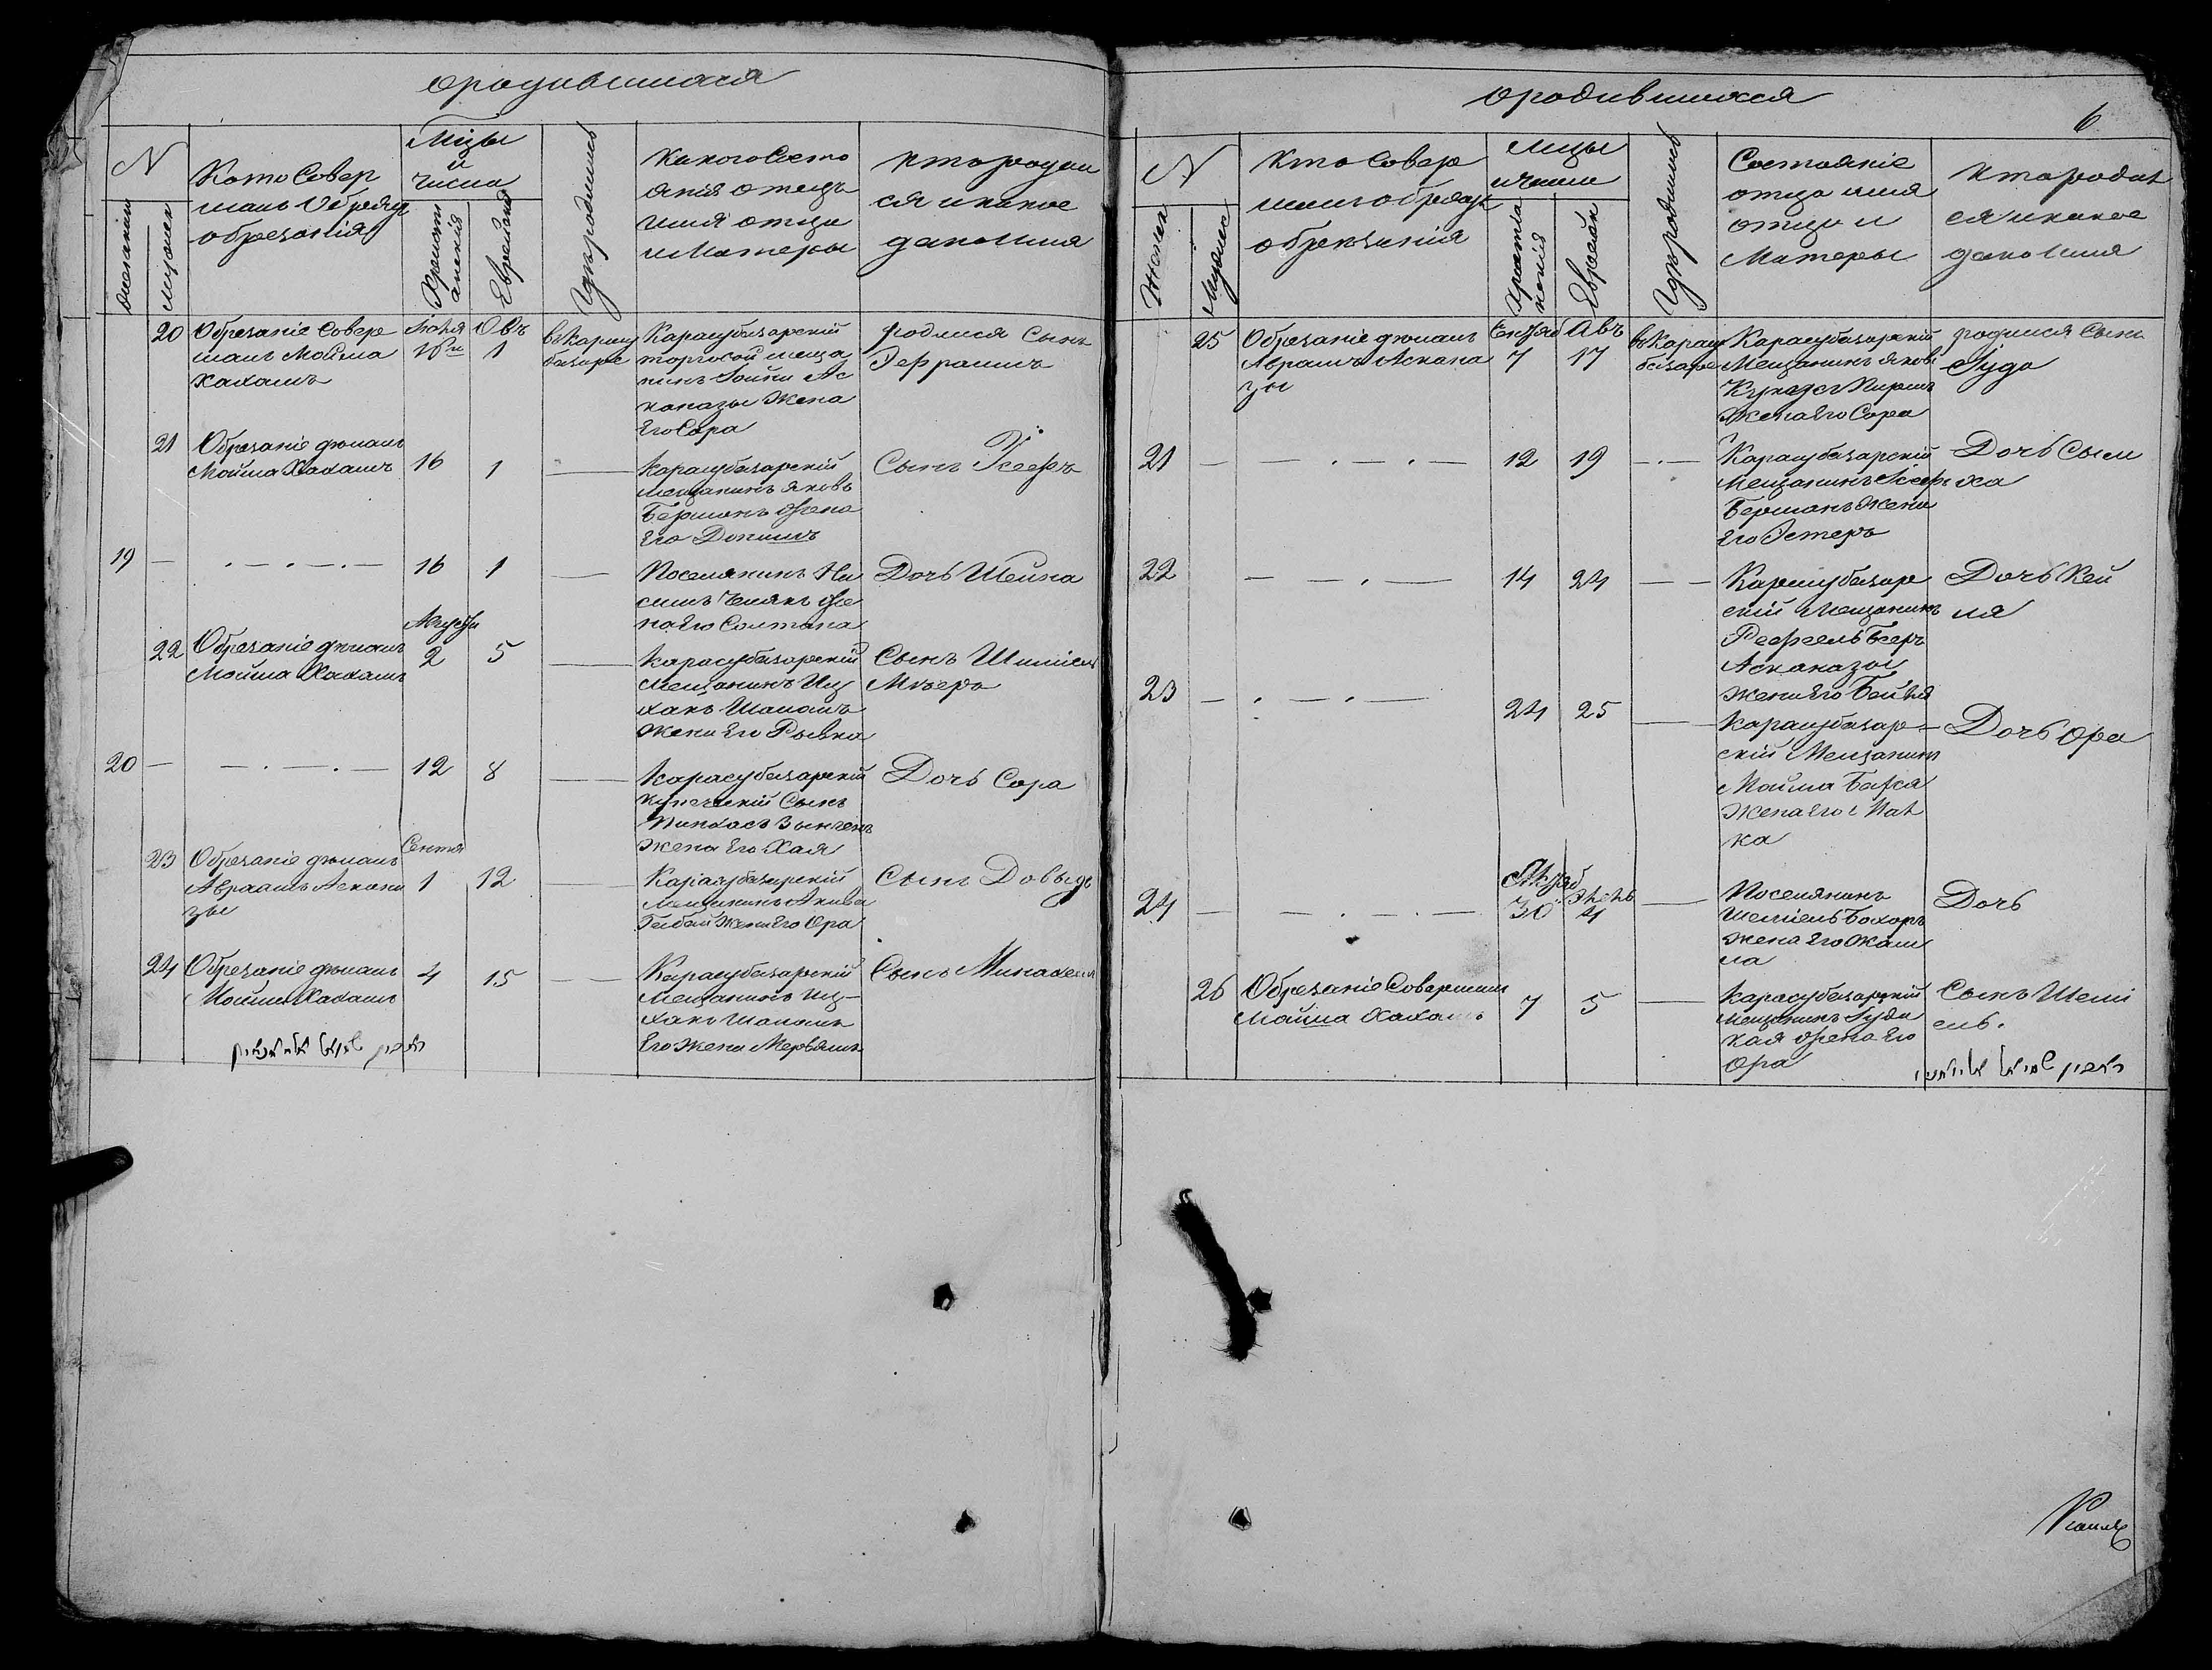 ородившихся
N
женскии
мужеск
Кото Совер
шалъ Обряд
обрезанія
Мцы
и
числа
Христі
анскія
Еврейскія
Гдѣ родились
Какого Состо
янія отецъ
имя отца
и Матери
кто родил
ся и какое
дано имя
20
Обрезаніе Совер
шалъ Мойша
Хахамъ
Іюля
16го
Овъ
1
въ Карасу
базаре
Карасубазарскій
торговой меща
нинъ Зойни Ас
каназы Жена
Его Сора
родился Сынъ
Эефраимъ
21
Обрезаніе дѣлалъ
Мойша Хахамъ
16
1
Карасубазарскій
мещанинъ Яковъ
Берманъ Жена
Его
Сынъ Іосефъ
19
16
1
Поселянинъ Ни
симъ Жена Его Солтана
Дочь Шейна
22
Обрезаніе дѣлалъ
Мойша Хахамъ
Августа
2
5
Карасубазарскій
Мещанинъ Иц
хакъ Шаломъ
Жена Его Рывка
Сынъ Шмиел
Мѣеръ
20
12
8
Карасубазарскій
купеческій Сынъ
Пинхасъ
Жена Его Хая
Дочь Сора
23
Обрезаніе дѣлалъ
Авраамъ Аскана
зы
Сентя
1
12
Карасубазарскій
Мещанинъ Акива
Габай Жена Его Ора
Сынъ Довыдъ
24
Обрезаніе дѣлалъ
Мойша Хахамъ
4
15
Карасубазарскій
Мещанинъ Иц-
хакъ Шаломъ
Его Жена Меръямъ
Сынъ Минахем
ородившихся
6
N
Женски
Мужес
Кто Совер
шалъ обрядъ
обрѣзанія
мцы
и числа
Христіа
нскія
Еврейск
Гдѣ родились
Состояніе
отца имя
отца и
Матери
кто родил
ся и какое
дано имя
25
Обрезаніе дѣлалъ
Авраамъ Аскана
зы
Сентяб
7
Авъ
17
въ Карасу
базаре
Карасубазарскій
Мещанинъ Яковъ
Жена Его Сора
родился Сынъ
Іуда
21
12
19
Карасубазарскій
Мещанинъ Іосефъ
Берманъ Жена
Его Эстеръ
Дочь Сым
ха
22
14
24
Карасубазар
скій Мещанинъ
Рефоель Бееръ
Асканазы
Жена Его Бейля
Дочь Кей
ля
23
24
25
Карасубазар-
скій Мещанинъ
Мойша
Жена Его
ка
Дочь Ора
24
30
4
Поселянинъ
Шеміель Бохоръ
Жена Его
Дочь
26
Обрезаніе Совершалъ
Мойша Хахамъ
7
5
Карасубазарскій
Мещанинъ Іуда
Кая Жена Его
Ора
Сынъ Шемі
ель.